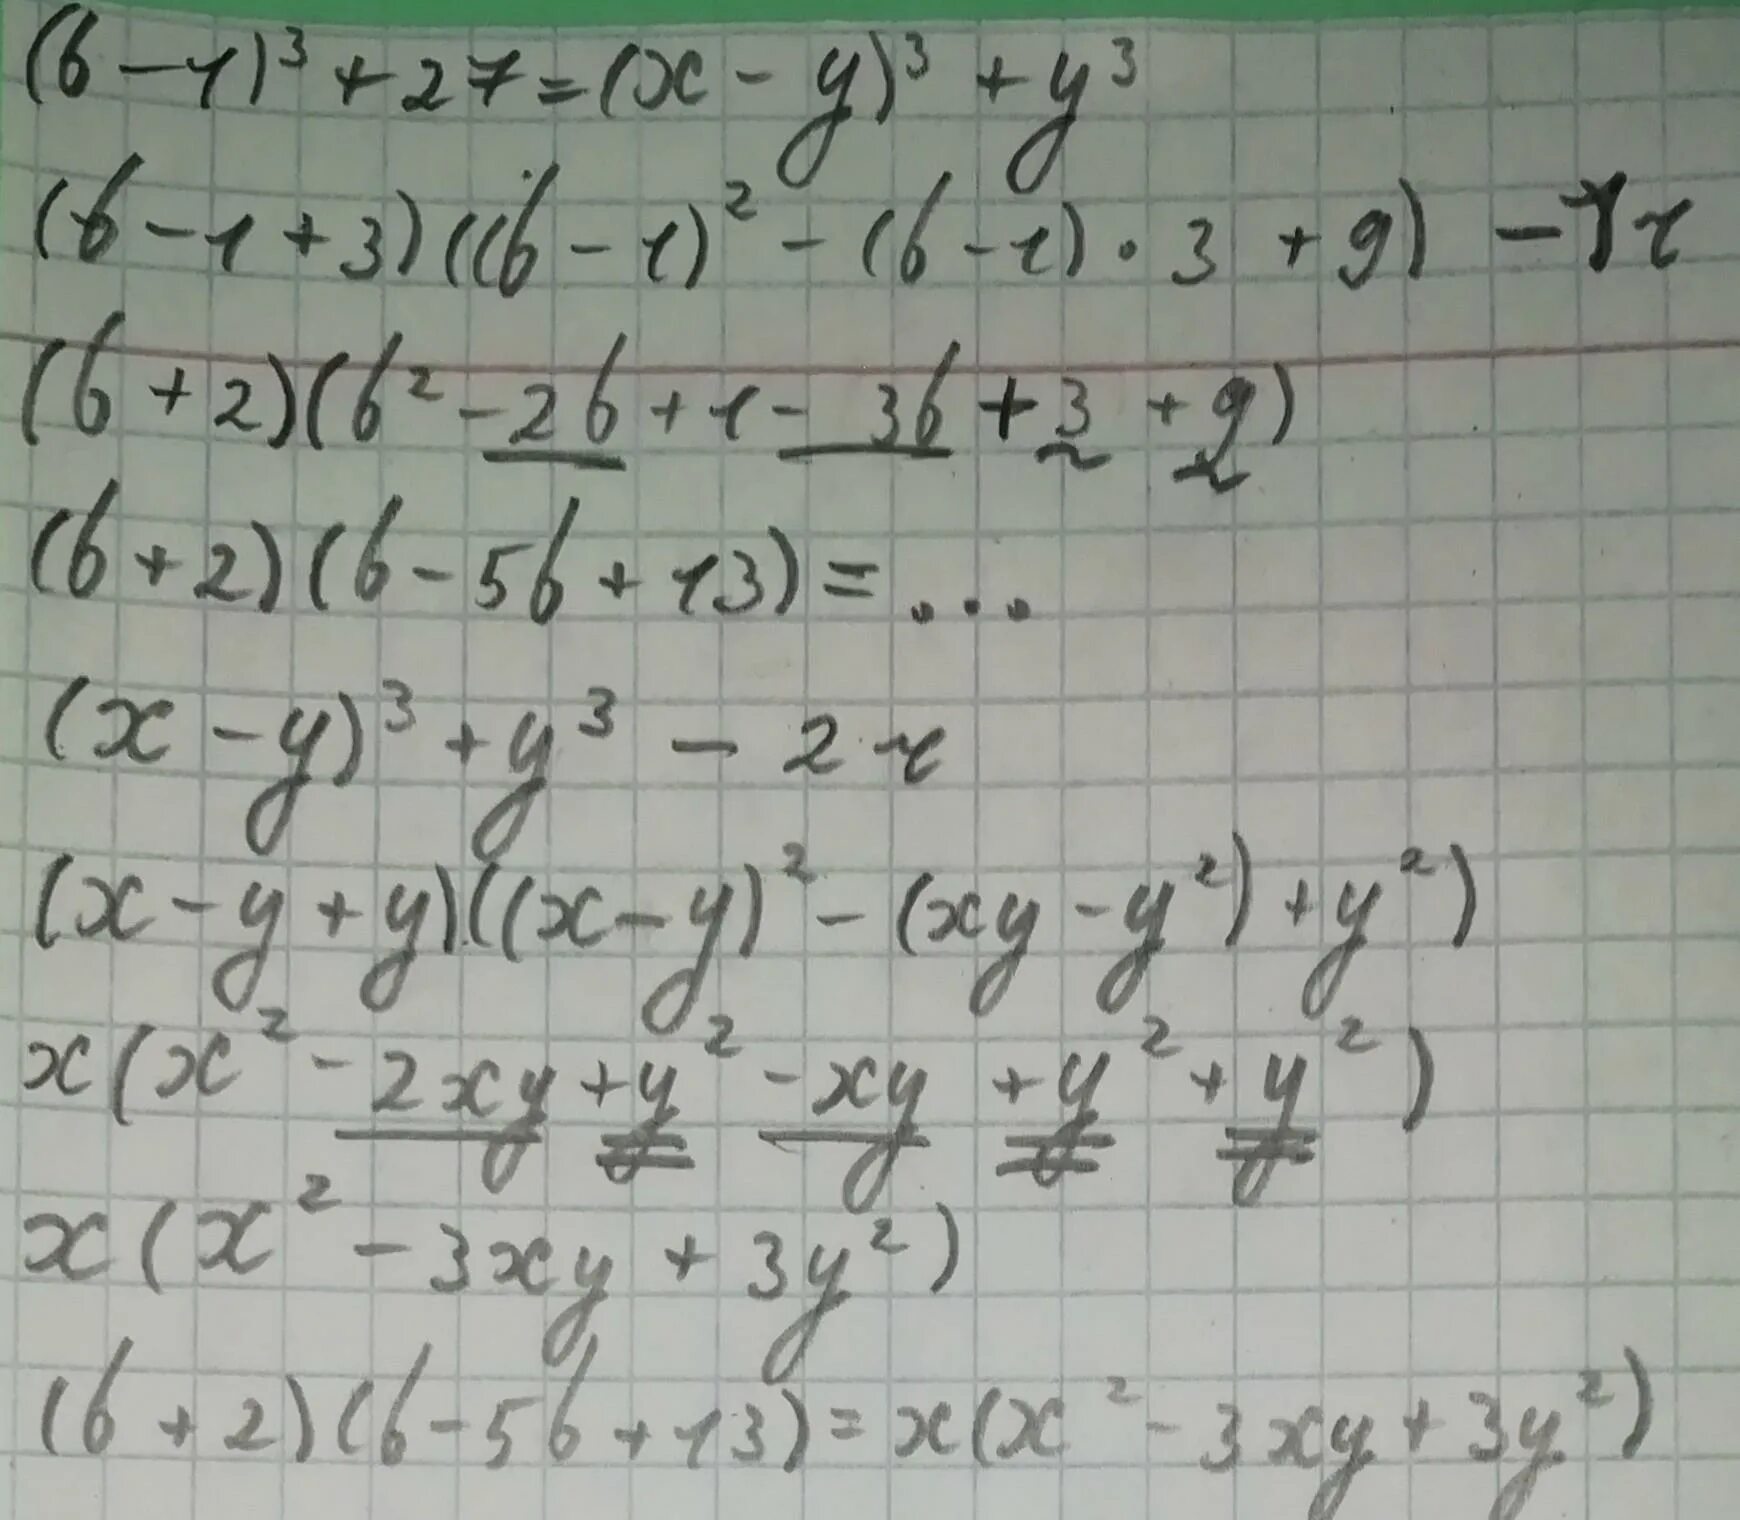 (b - 1)³ + 27 = (x - y)³ + y³
(b - 1 + 3)((b - 1)² - (b - 1) · 3 + 9) -
(b + 2)(b² - 2b + 1 - 3b + 3 + 9)
(b + 2)(b - 5b + 13) = ...
(x - y)³ + y³ - 2 ч
(x - y + y)((x - y)² - (xy - y²) + y²)
x(x² - 2xy + y² - xy + y² + y²)
x(x² - 3xy + 3y²)
(b + 2)(b - 5b + 13) = x(x² - 3xy + 3y²)